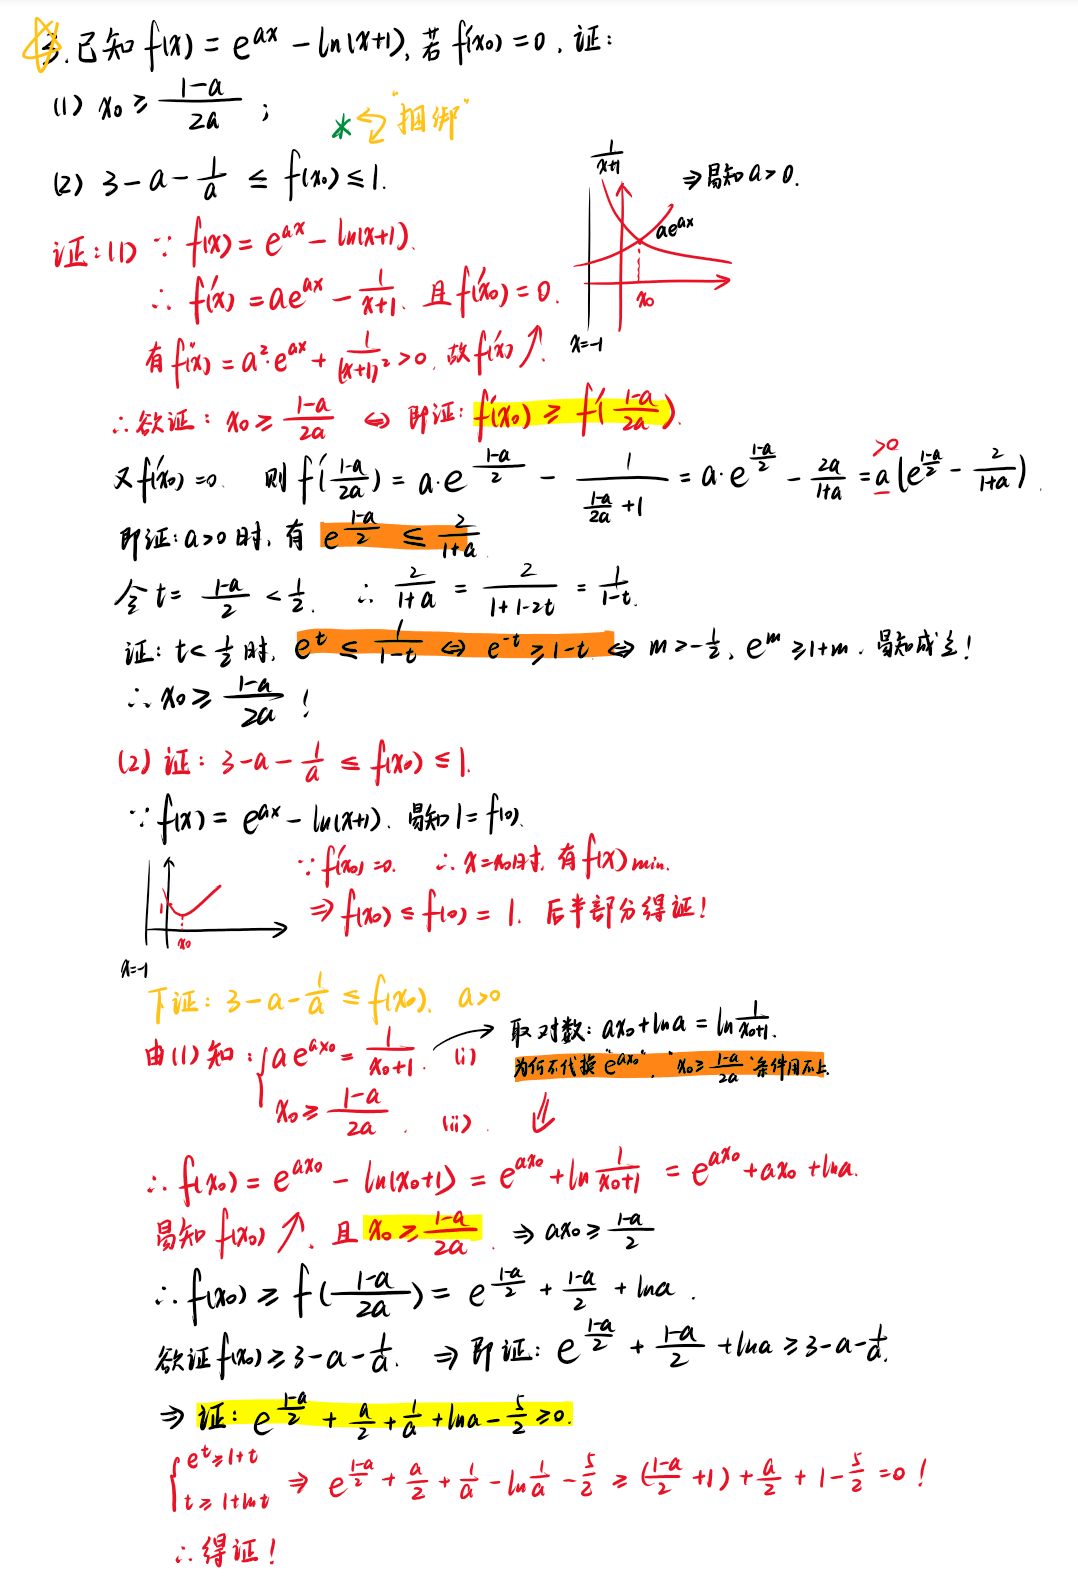 3. 已知 f(x) = e^{ax} - ln(x+1), 若 f'(x₀) = 0, 证:
(1) x₀ ≥ \frac{1-a}{2a} ;
* "捆绑"
(2) 3 - a - \frac{1}{a} ≤ f(x₀) ≤ 1.
\frac{1}{x+1}
⇒ 易知 a > 0.
ae^{ax}
x₀
x=-1
证: (1) ∵ f(x) = e^{ax} - ln(x+1).
∴ f'(x) = ae^{ax} - \frac{1}{x+1}. 且 f'(x₀) = 0.
有 f''(x) = a²·e^{ax} + \frac{1}{(x+1)²} > 0. 故 f'(x) ↗.
∴ 欲证: x₀ ≥ \frac{1-a}{2a} ⇔ 即证: f'(x₀) ≥ f'(\frac{1-a}{2a}).
又 f'(x₀) = 0. 则 f'(\frac{1-a}{2a}) = a·e^{\frac{1-a}{2}} - \frac{1}{\frac{1-a}{2a}+1} = a·e^{\frac{1-a}{2}} - \frac{2a}{1+a} = a(e^{\frac{1-a}{2}} - \frac{2}{1+a}).
>0
即证: a>0 时, 有 e^{\frac{1-a}{2}} ≤ \frac{2}{1+a}.
令 t = \frac{1-a}{2} < \frac{1}{2}. ∴ \frac{2}{1+a} = \frac{2}{1+1-2t} = \frac{1}{1-t}.
证: t < \frac{1}{2} 时, e^t ≤ \frac{1}{1-t} ⇔ e^{-t} ≥ 1-t ⇔ m > -\frac{1}{2}, e^m ≥ 1+m. 易知成立!
∴ x₀ ≥ \frac{1-a}{2a} !
(2) 证: 3 - a - \frac{1}{a} ≤ f(x₀) ≤ 1.
∵ f(x) = e^{ax} - ln(x+1). 易知 1 = f(0).
∵ f'(x₀) = 0. ∴ x = x₀ 时, 有 f(x) min.
⇒ f(x₀) ≤ f(0) = 1. 后半部分得证!
1
x₀
x=-1
下证: 3 - a - \frac{1}{a} ≤ f(x₀). a>0
由(1)知: { ae^{ax₀} = \frac{1}{x₀+1}. (i)
→ 取对数: ax₀ + ln a = ln \frac{1}{x₀+1}.
为何不代换 "e^{ax₀}", "x₀ ≥ \frac{1-a}{2a}" 条件用不上.
x₀ ≥ \frac{1-a}{2a}. (ii).
⇓
∴ f(x₀) = e^{ax₀} - ln(x₀+1) = e^{ax₀} + ln \frac{1}{x₀+1} = e^{ax₀} + ax₀ + ln a.
易知 f(x₀) ↗. 且 x₀ ≥ \frac{1-a}{2a}. ⇒ ax₀ ≥ \frac{1-a}{2}
∴ f(x₀) ≥ f(\frac{1-a}{2a}) = e^{\frac{1-a}{2}} + \frac{1-a}{2} + ln a.
欲证 f(x₀) ≥ 3 - a - \frac{1}{a}. ⇒ 即证: e^{\frac{1-a}{2}} + \frac{1-a}{2} + ln a ≥ 3 - a - \frac{1}{a}.
⇒ 证: e^{\frac{1-a}{2}} + \frac{a}{2} + \frac{1}{a} + ln a - \frac{5}{2} ≥ 0.
{ e^t ≥ 1+t
t ≥ 1+ln t ⇒ e^{\frac{1-a}{2}} + \frac{a}{2} + \frac{1}{a} - ln \frac{1}{a} - \frac{5}{2} ≥ (\frac{1-a}{2} + 1) + \frac{a}{2} + 1 - \frac{5}{2} = 0 !
∴ 得证!